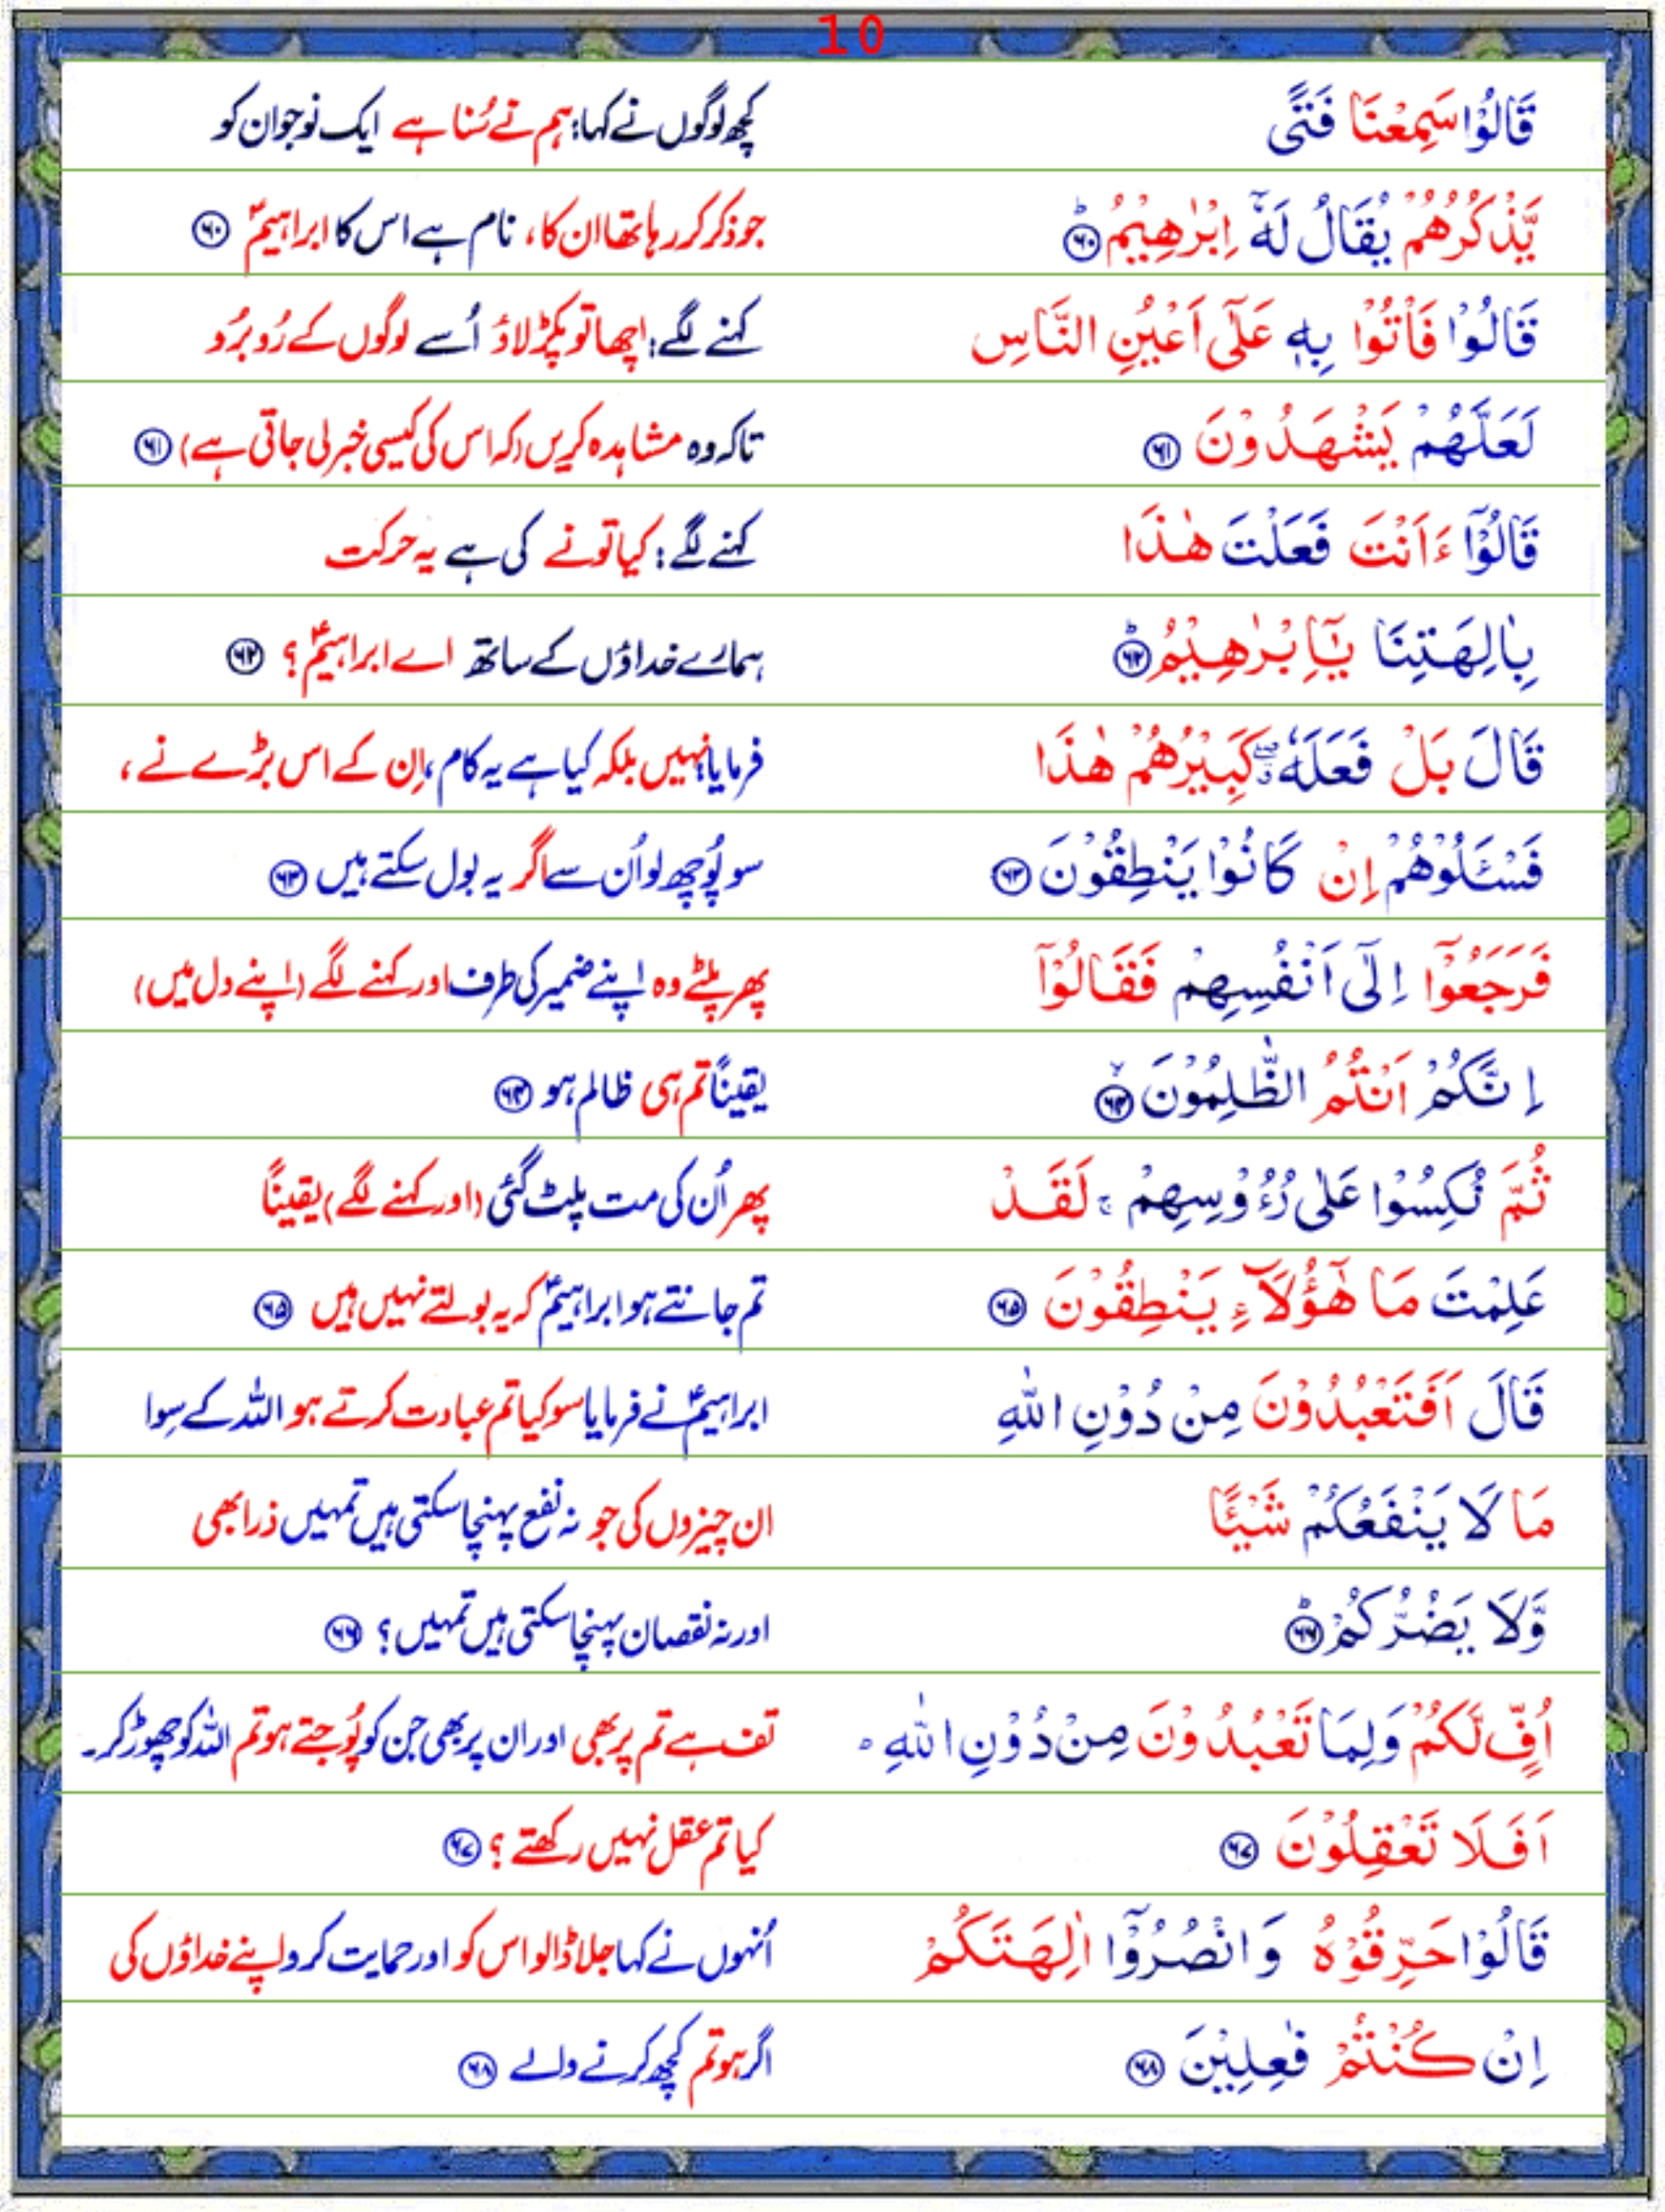 10
قَالُوْا سَمِعْنَا فَتًى
کچھ لوگوں نے کہا: ہم نے سُنا ہے ایک نوجوان کو
يَّذْكُرُهُمْ يُقَالُ لَهٗٓ اِبْرٰهِيْمُ ؕ ﴿۶۰﴾
جو ذکر کر رہا تھا ان کا، نام ہے اس کا ابراہیمؑ ﴿۶۰﴾
قَالُوْا فَاْتُوْا بِهٖ عَلٰٓى اَعْيُنِ النَّاسِ
کہنے لگے: اچھا تو پکڑ لاؤ اُسے لوگوں کے رُو برُو
لَعَلَّهُمْ يَشْهَدُوْنَ ﴿۶۱﴾
تاکہ وہ مشاہدہ کریں (کہ اس کی کیسی خبر لی جاتی ہے) ﴿۶۱﴾
قَالُوْٓا ءَاَنْتَ فَعَلْتَ هٰذَا
کہنے لگے: کیا تونے کی ہے یہ حرکت
بِاٰلِهَتِنَا يٰٓاِبْرٰهِيْمُ ؕ ﴿۶۲﴾
ہمارے خداؤں کے ساتھ اے ابراہیمؑ؟ ﴿۶۲﴾
قَالَ بَلْ فَعَلَهٗ ۖۗ كَبِيْرُهُمْ هٰذَا
فرمایا: نہیں بلکہ کیا ہے یہ کام، اِن کے اس بڑے نے،
فَسْـَٔلُوْهُمْ اِنْ كَانُوْا يَنْطِقُوْنَ ﴿۶۳﴾
سو پُوچھ لو اُن سے اگر یہ بول سکتے ہیں ﴿۶۳﴾
فَرَجَعُوْٓا اِلٰٓى اَنْفُسِهِمْ فَقَالُوْٓا
پھر پلٹے وہ اپنے ضمیر کی طرف اور کہنے لگے (اپنے دل میں)
اِنَّكُمْ اَنْتُمُ الظّٰلِمُوْنَ ۙ ﴿۶۴﴾
یقیناً تم ہی ظالم ہو ﴿۶۴﴾
ثُمَّ نُكِسُوْا عَلٰى رُءُوْسِهِمْ ۚ لَقَدْ
پھر اُن کی مت پلٹ گئی (اور کہنے لگے) یقیناً
عَلِمْتَ مَا هٰٓؤُلَآءِ يَنْطِقُوْنَ ﴿۶۵﴾
تم جانتے ہو ابراہیمؑ کہ یہ بولتے نہیں ہیں ﴿۶۵﴾
قَالَ اَفَتَعْبُدُوْنَ مِنْ دُوْنِ اللّٰهِ
ابراہیمؑ نے فرمایا سو کیا تم عبادت کرتے ہو اللہ کے سِوا
مَا لَا يَنْفَعُكُمْ شَيْـًٔا
ان چیزوں کی جو نہ نفع پہنچا سکتی ہیں تمہیں ذرا بھی
وَّلَا يَضُرُّكُمْ ؕ ﴿۶۶﴾
اور نہ نقصان پہنچا سکتی ہیں تمہیں؟ ﴿۶۶﴾
اُفٍّ لَّكُمْ وَلِمَا تَعْبُدُوْنَ مِنْ دُوْنِ اللّٰهِ ؕ
تف ہے تم پر بھی اور ان پر بھی جن کو پُوجتے ہو تم اللہ کو چھوڑ کر۔
اَفَلَا تَعْقِلُوْنَ ﴿۶۷﴾
کیا تم عقل نہیں رکھتے؟ ﴿۶۷﴾
قَالُوْا حَرِّقُوْهُ وَانْصُرُوْٓا اٰلِهَتَكُمْ
اُنہوں نے کہا جلا ڈالو اس کو اور حمایت کرو اپنے خداؤں کی
اِنْ كُنْتُمْ فٰعِلِيْنَ ﴿۶۸﴾
اگر ہو تم کچھ کرنے والے ﴿۶۸﴾